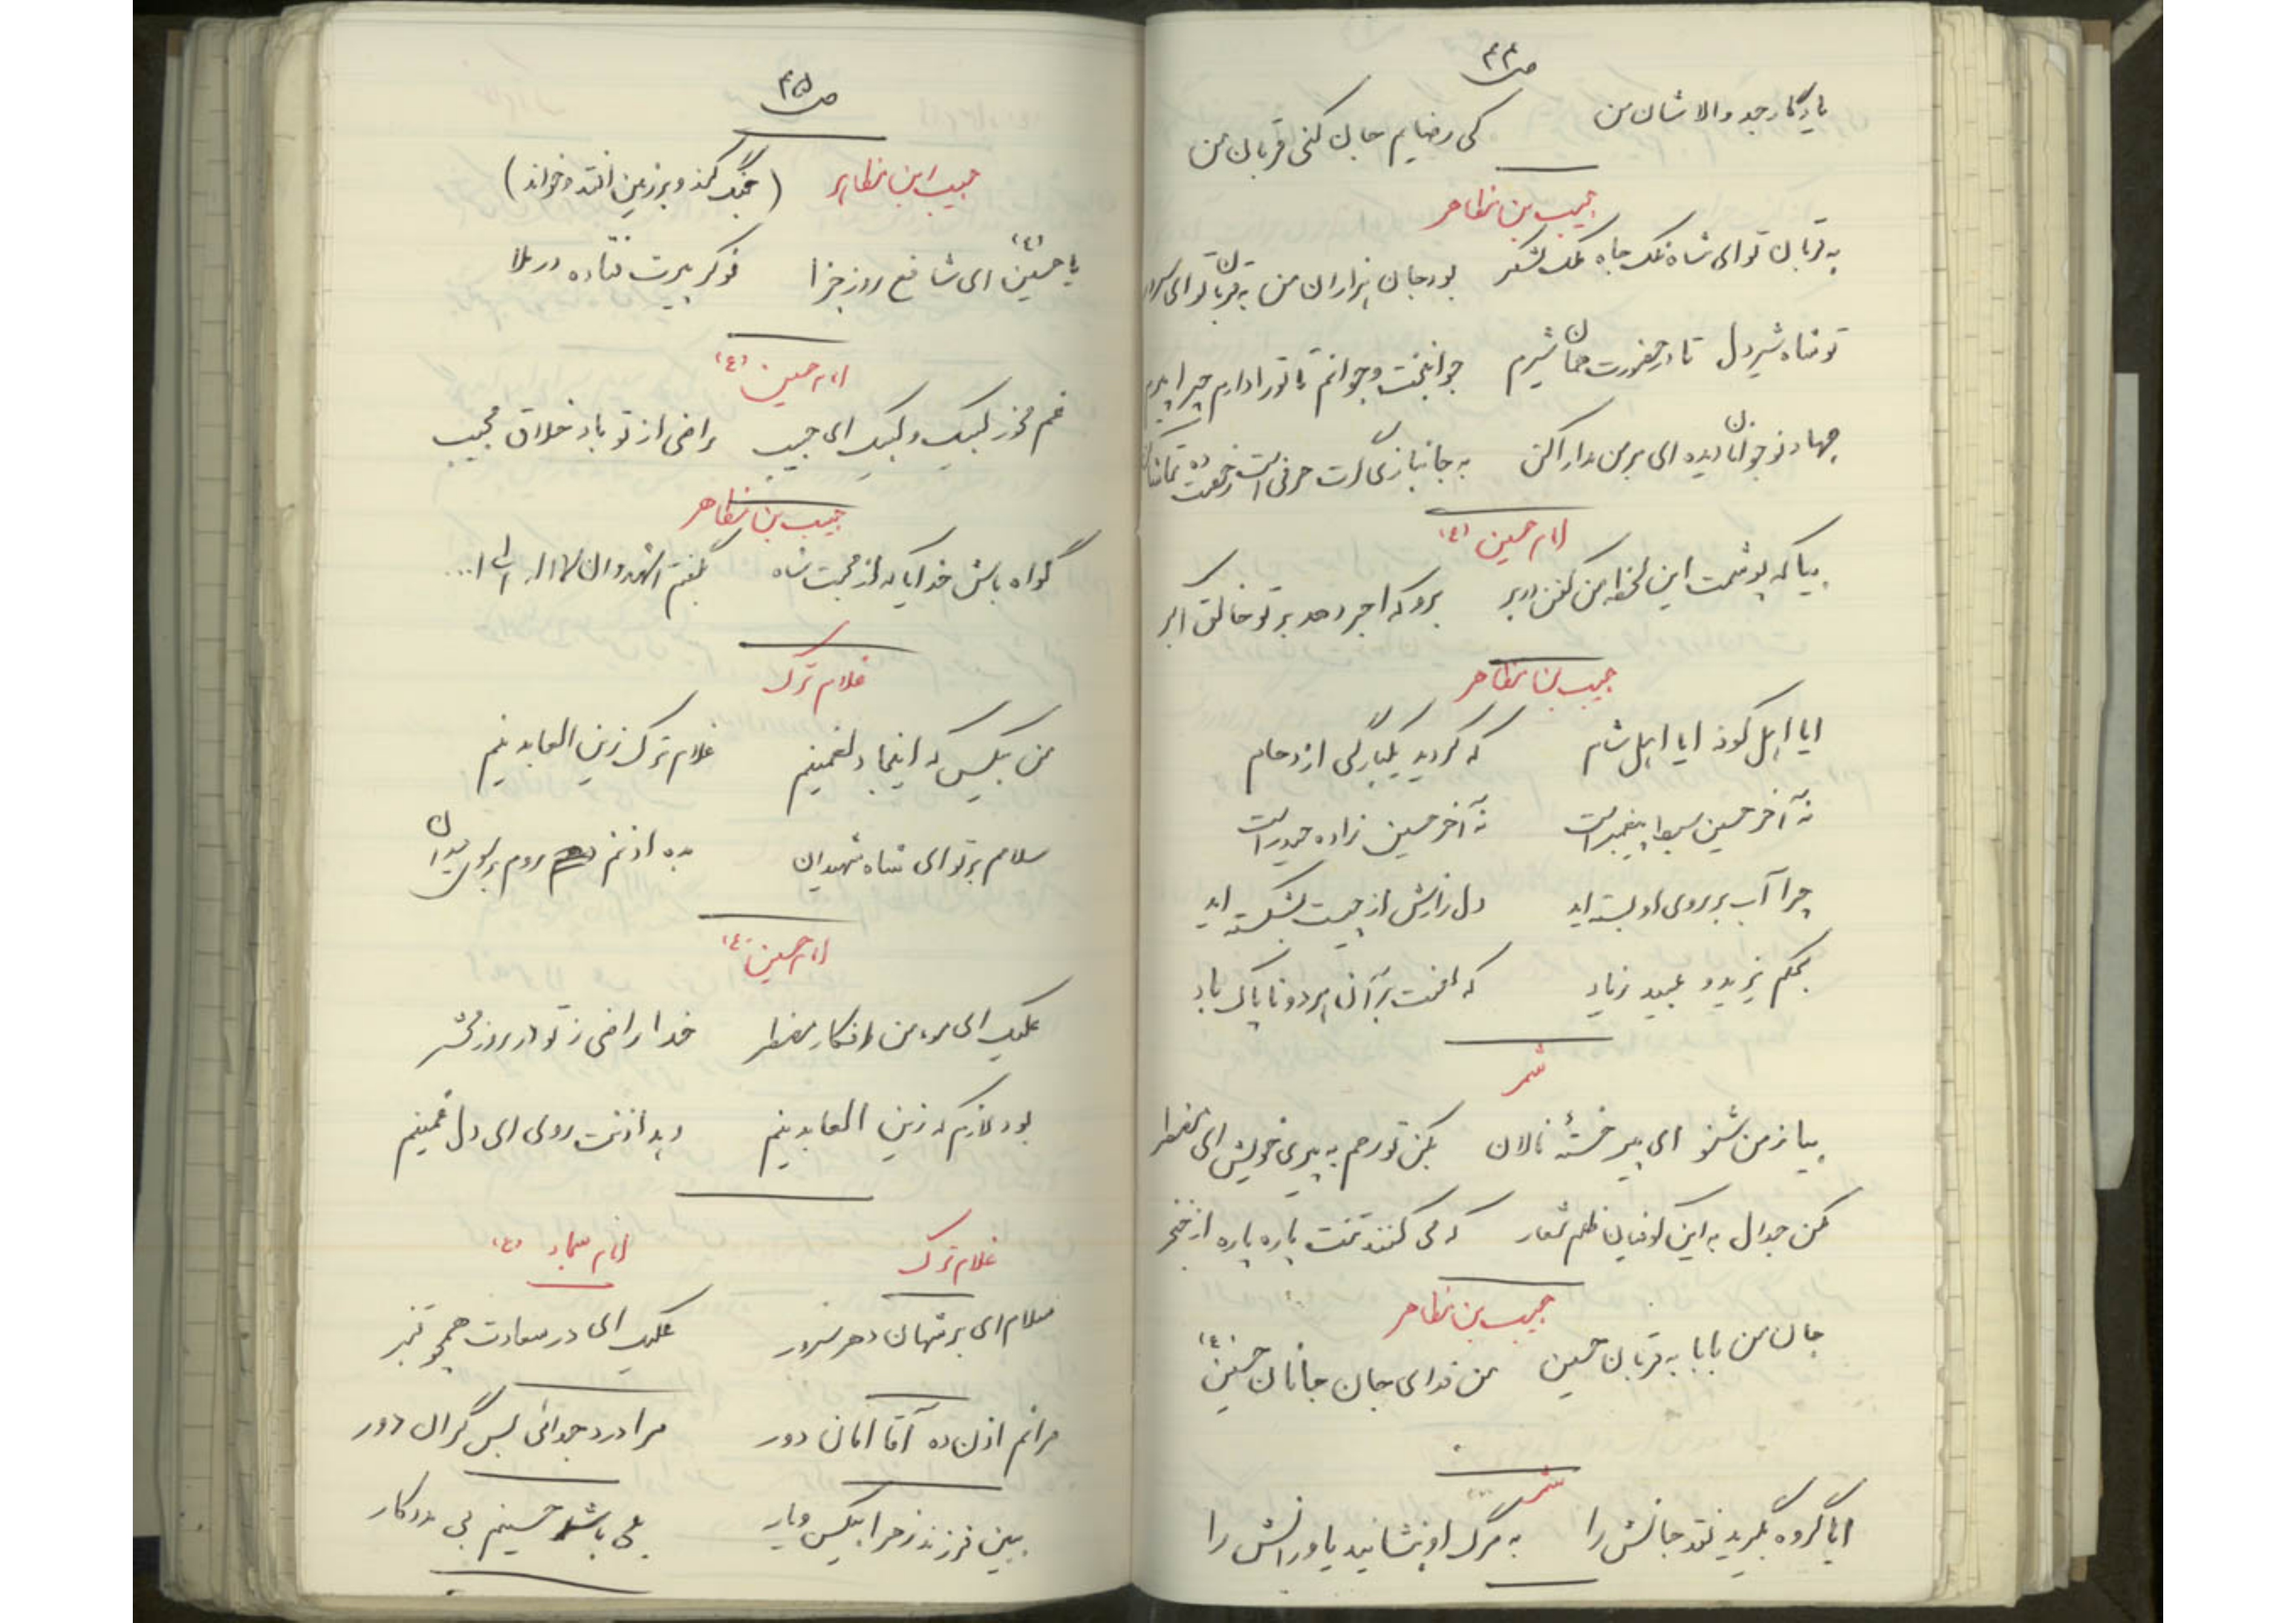 ص ۴۴
یادگار جد والاشان من کی رضایم جان کنی قربان من
حبیب بن مظاهر
به قربان تو ای شاه فلک جاه ملک لشکر بود جان هزاران من به قربان تو ای سرور
تو شاه شیردل تا در حضورت همان شیرم جوانبخت و جوانم تا تو را دارم چرا پیرم
جهاد نوجوانان دیده ای بر من مدارا کن به جانبازی گرت حرفی است رخصت ده تماشا کن
امام حسین (ع)
بیا که پوشمت این لحظه من کفن در بر برو که اجر دهد بر تو خالق اکبر
حبیب بن مظاهر
ایا اهل کوفه ایا اهل شام که کردید یکبارگی ازدحام
نه آخر حسین سبط پیغمبر است نه آخر حسین زاده حیدر است
چرا آب بر روی او بسته اید دل زارش از چیست بشکسته اید
بحکم یزید و عبید زیاد که لعنت بر آن هر دو ناپاک باد
شمر
بیا ز من شنو ای پیر خستهٔ نالان بکن تو رحم به پیری خویش ای مضطر
مکن جدال به این کوفیان ظلم شعار که می کنند تنت پاره پاره از خنجر
حبیب بن مظاهر
جان من بابا به قربان حسین من فدای جان جانان حسین (ع)
شمر
ایا گروه بگیرید نقد جانش را به مرگ او بنشانید یاورانش را
ص ۴۵
حبیب ابن مظاهر (جنگ کند و بر زمین افتد و خواند)
یا حسین (ع) ای شافع روز جزا نوکر پیرت فتاده در بلا
امام حسین (ع)
غم مخور لبیک و لبیک ای حبیب راضی از تو باد خلاق مجیب
حبیب بن مظاهر
گواه باش خدایا که از محبت شاه بگفتم اشهد و ان لا اله الا ا...
غلام ترک
من بیکس که اینجا دلغمینم غلام ترک زین العابدینم
سلام بر تو ای شاه شهیدان بده اذنم روم بر سوی میدان
امام حسین (ع)
علیک ای مومن افکار مضطر خدا راضی ز تو در روز محشر
بود لازم که زین العابدینم دهد اذنت روی ای دل غمینم
غلام ترک امام سجاد (ع)
سلام ای بر شهان دهر سرور علیک ای در سعادت همچو قنبر
مرا هم اذن ده آقا امان دور مرا درد جدائی بس گران دور
ببین فرزند زهرا بیکس و یار بلی باشد حسینم بی مددکار